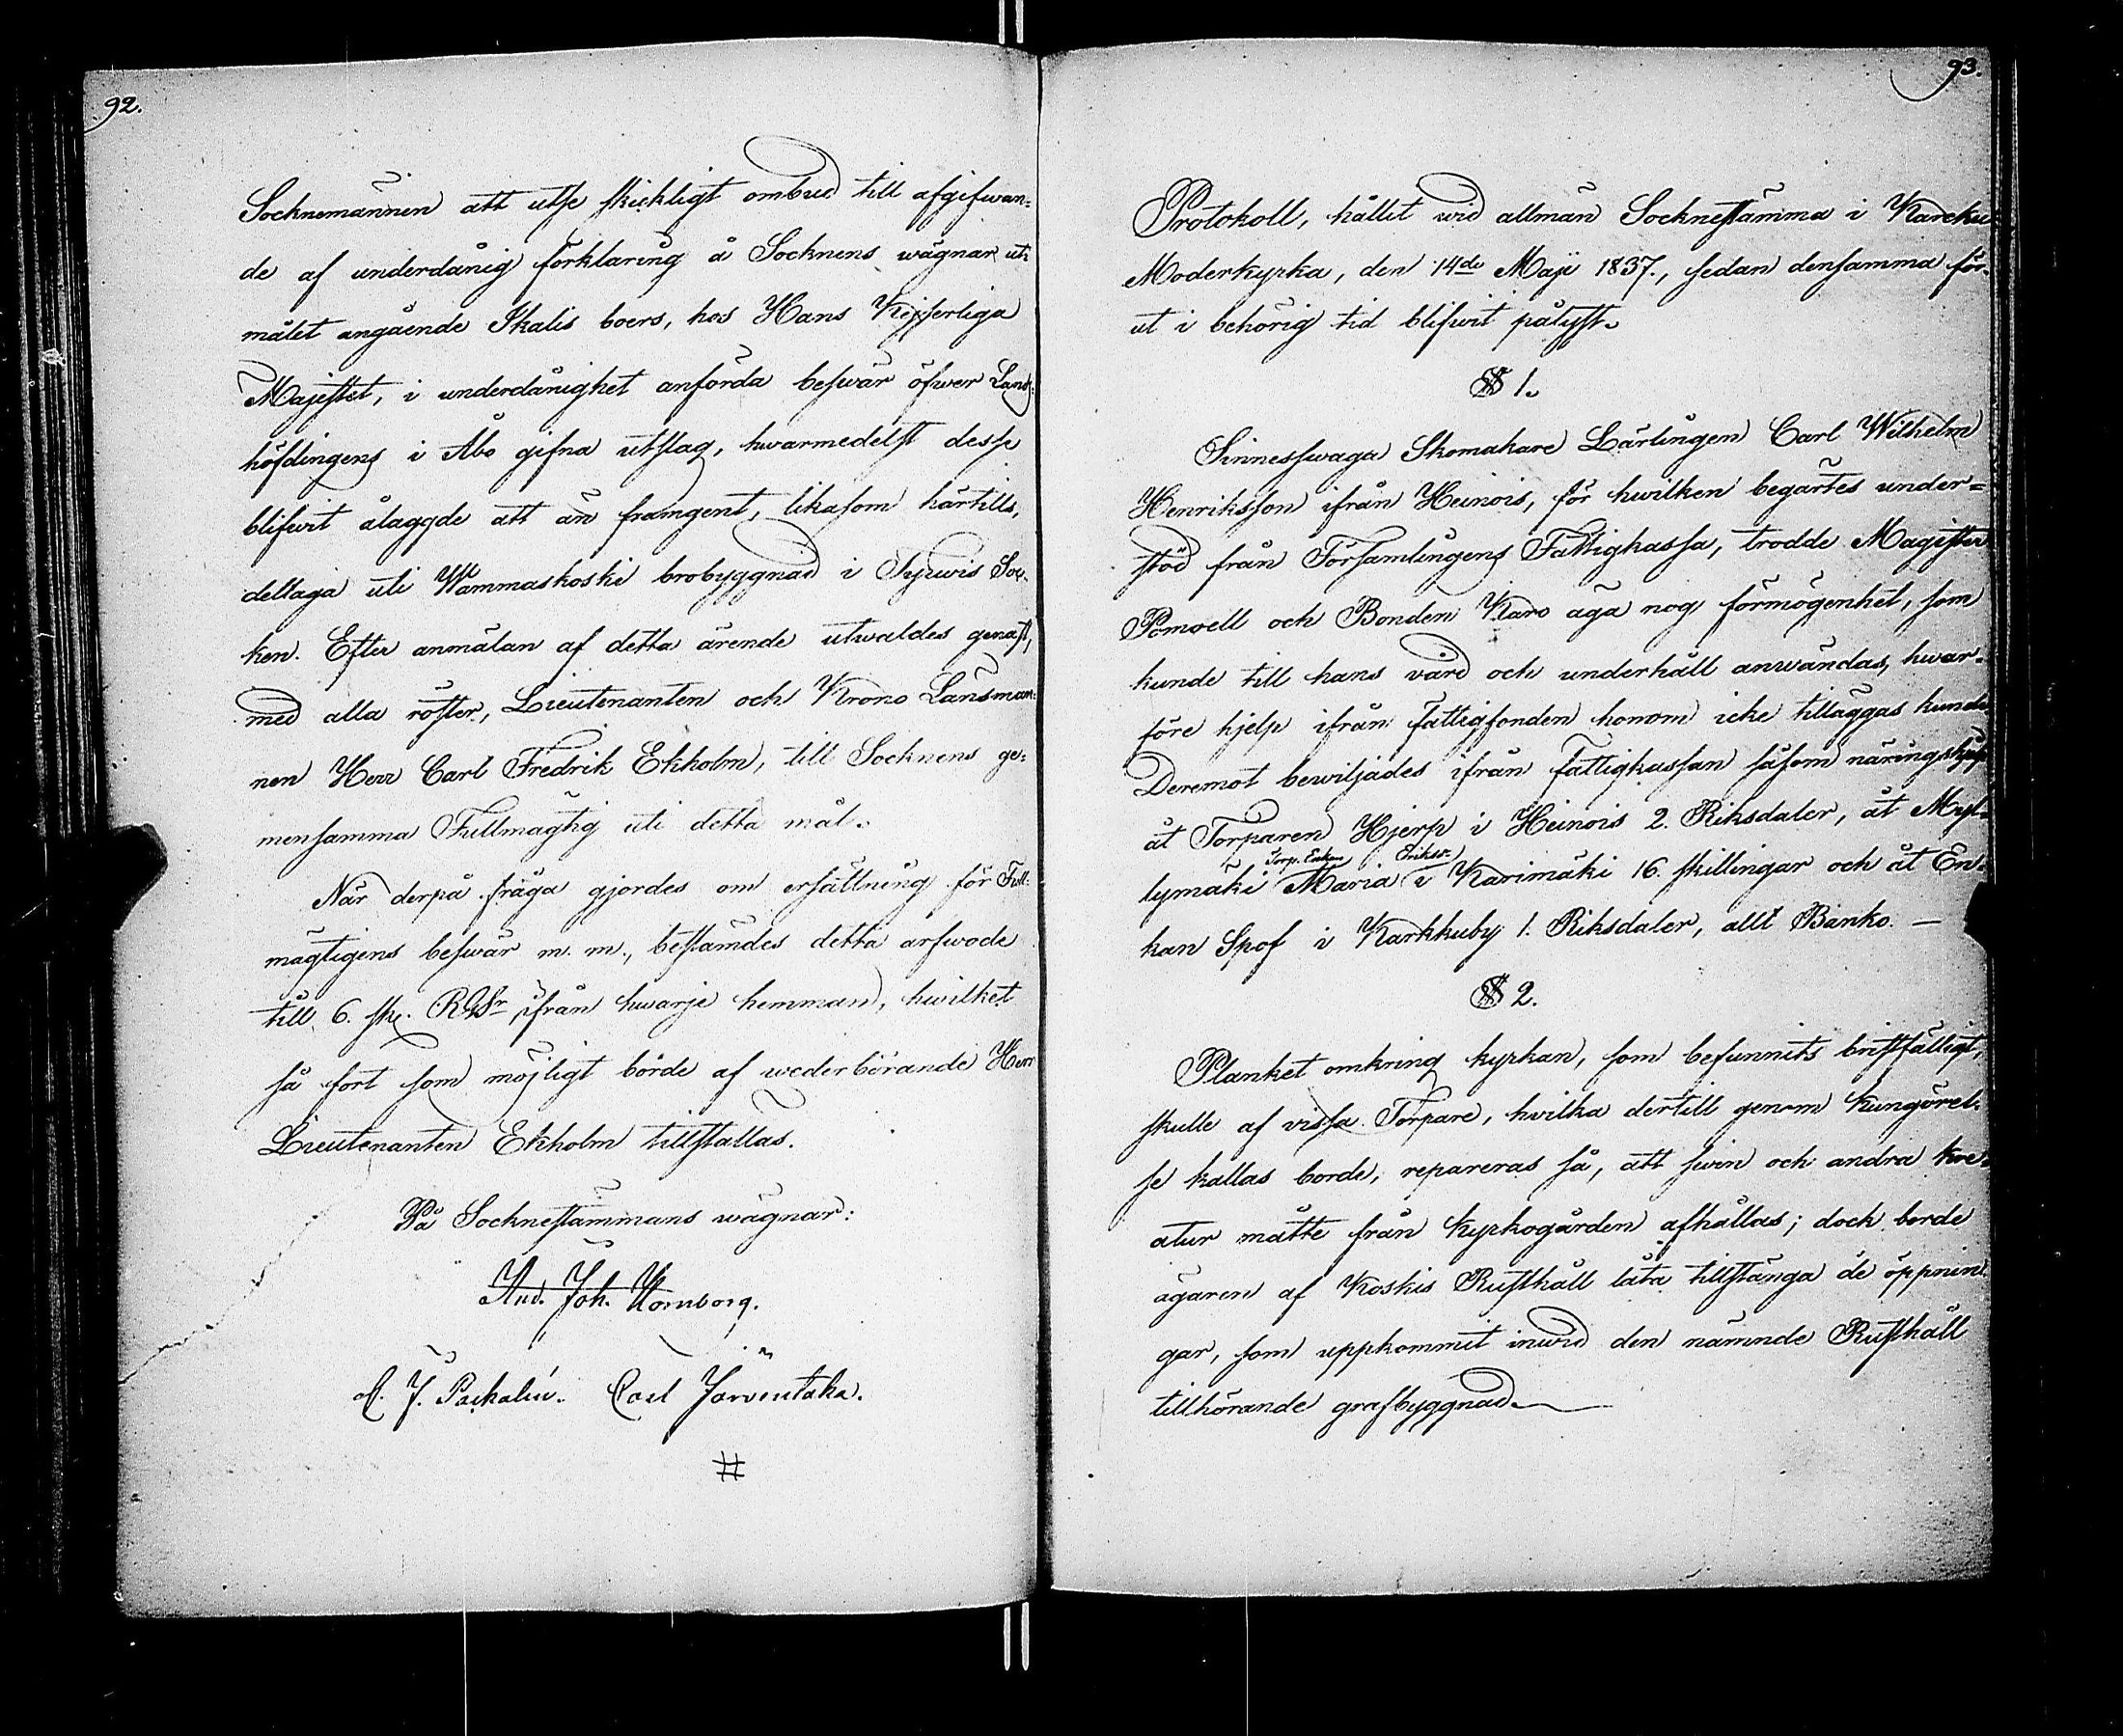 92.
Socknemännen att utse skickligt ombud till afgifwan-
de af underdånig förklaring å Socknens wägnar uti
målet angående Skalis boers, hos Hans Kejserliga
Majestet, i underdånighet anförda beswär öfwer Lands-
höfdingens i Åbo gifna utslag, hwarmedelst desse
blifwit ålaggde att än framgent, likasom härtills,
deltaga uti Wammaskoski brobyggnad i Tyrwis Soc-
ken. Efter anmälan af detta ärende utwaldes genast,
med alla röster, Lieutenanten och Krono Länsman-
nen Herr Carl Fredrik Ekholm, till Socknens ge-
mensamma Fullmägtig uti detta mål.
När derpå fråga gjordes om ersättning för Full-
mägtigens beswär m. m., bestämdes detta arfwode
till 6. sk. RGSr ifrån hwarje hemman, hwilket
så fort som möjligt börde af wederbörande Herr
Lieutenanten Ekholm tillställas.
På Sockneståmmans wägnar:
And. Joh. Hornborg.
C. J. Paskalin. Carl Jarventaka.
#
93.
Protokoll, hållit wid allmän Socknestämma i Karcku
Moderkyrka, den 14de Maji 1837., sedan densamma för-
ut i behörig tid blifwit pålyst.
§ 1.
Sinnesswaga Skomakare Lärlingen Carl Wilhelm
Henriksson ifrån Heinois, för hwilken begärtes under=
stöd från Församlingens Fattigkassa, trodde Magister
Pomoell och Bonden Karo äga nog förmögenhet, som
kunde till hans vård och underhåll anwändas, hwar-
före hjelp ifrån fattigfonden honom icke tilläggas kunde
Deremot bewiljades ifrån fattigkassan såsom näringshjelp
åt Torparen Hjerp i Heinois 2. Riksdaler, åt Myl-
Torp. Enkan Eriksdr
lymäki Maria i Karimäki 16. skillingar och åt En-
kan Spof i Karkkuby 1. Riksdaler, allt Banko. —
§ 2.
Planket omkring kyrkan, som befunnits bristfälligt,
skulle af vissa Torpare, hvilka dertill genom Kungörel-
se kallas borde, repareras så, att swin och andra kre-
atur måtte från kyrkogården afhållas; dock borde
ägaren af Koskis Rusthåll låta tillstänga de öppnin-
gar, som uppkommit inwid den nämnde Rusthåll
tillhörande grafbyggnad.